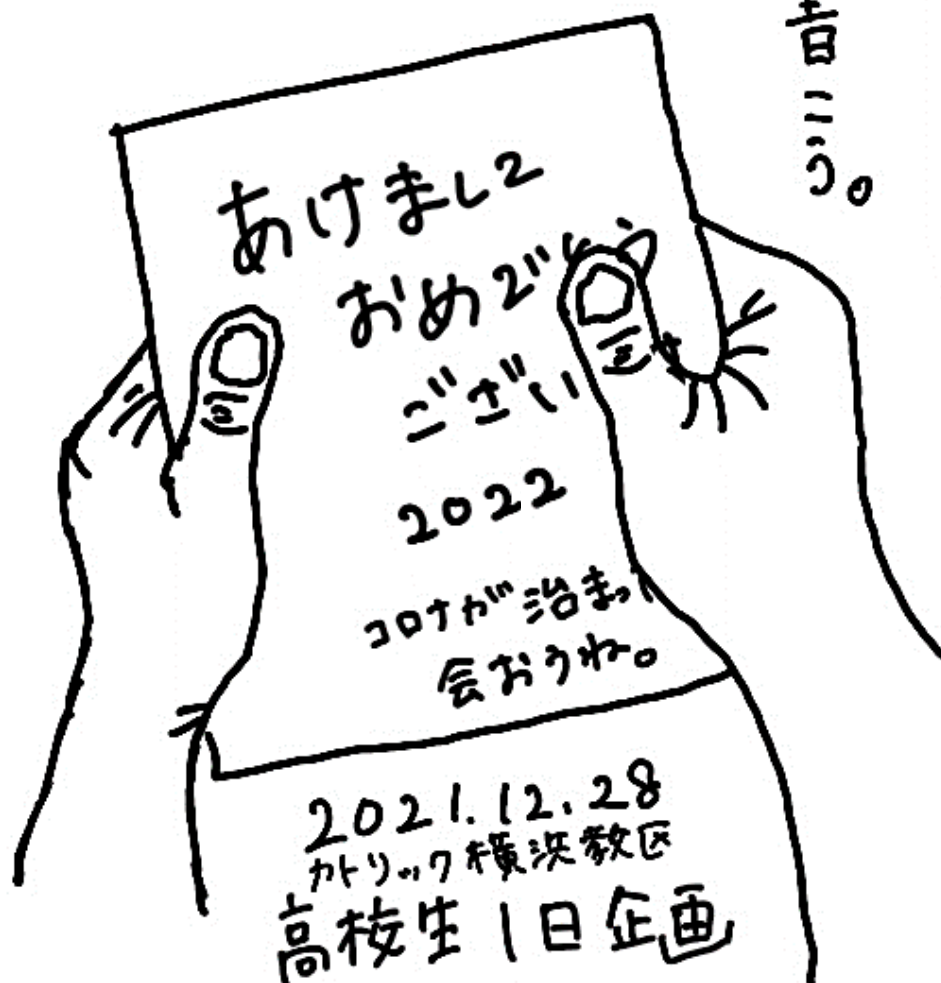 こう。
あけまして
おめで
ござい
2022
コロナが治まっ
会おうね。
2021.12.28
カトリック横浜教区
高校生1日企画